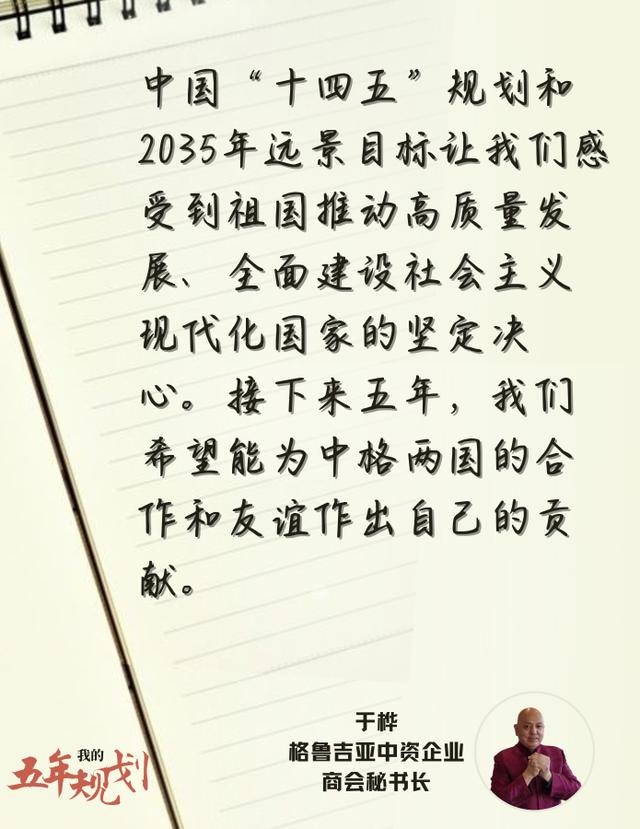 中国“十四五”规划和
2035年远景目标让我们感
受到祖国推动高质量发
展、全面建设社会主义
现代化国家的坚定决
心。接下来五年，我们
希望能为中格两国的合
作和友谊作出自己的贡
献。
于桦
格鲁吉亚中资企业
商会秘书长
我的
五年规划